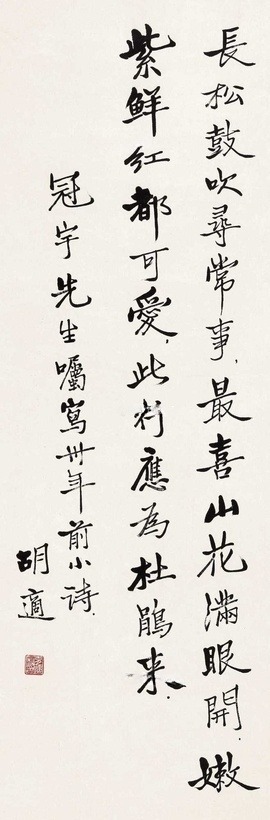 長松鼓吹尋常事，最喜山花滿眼開．嫩
紫鮮紅都可愛，此行應為杜鵑来．
冠宇先生囑寫卅年前小詩．
胡適